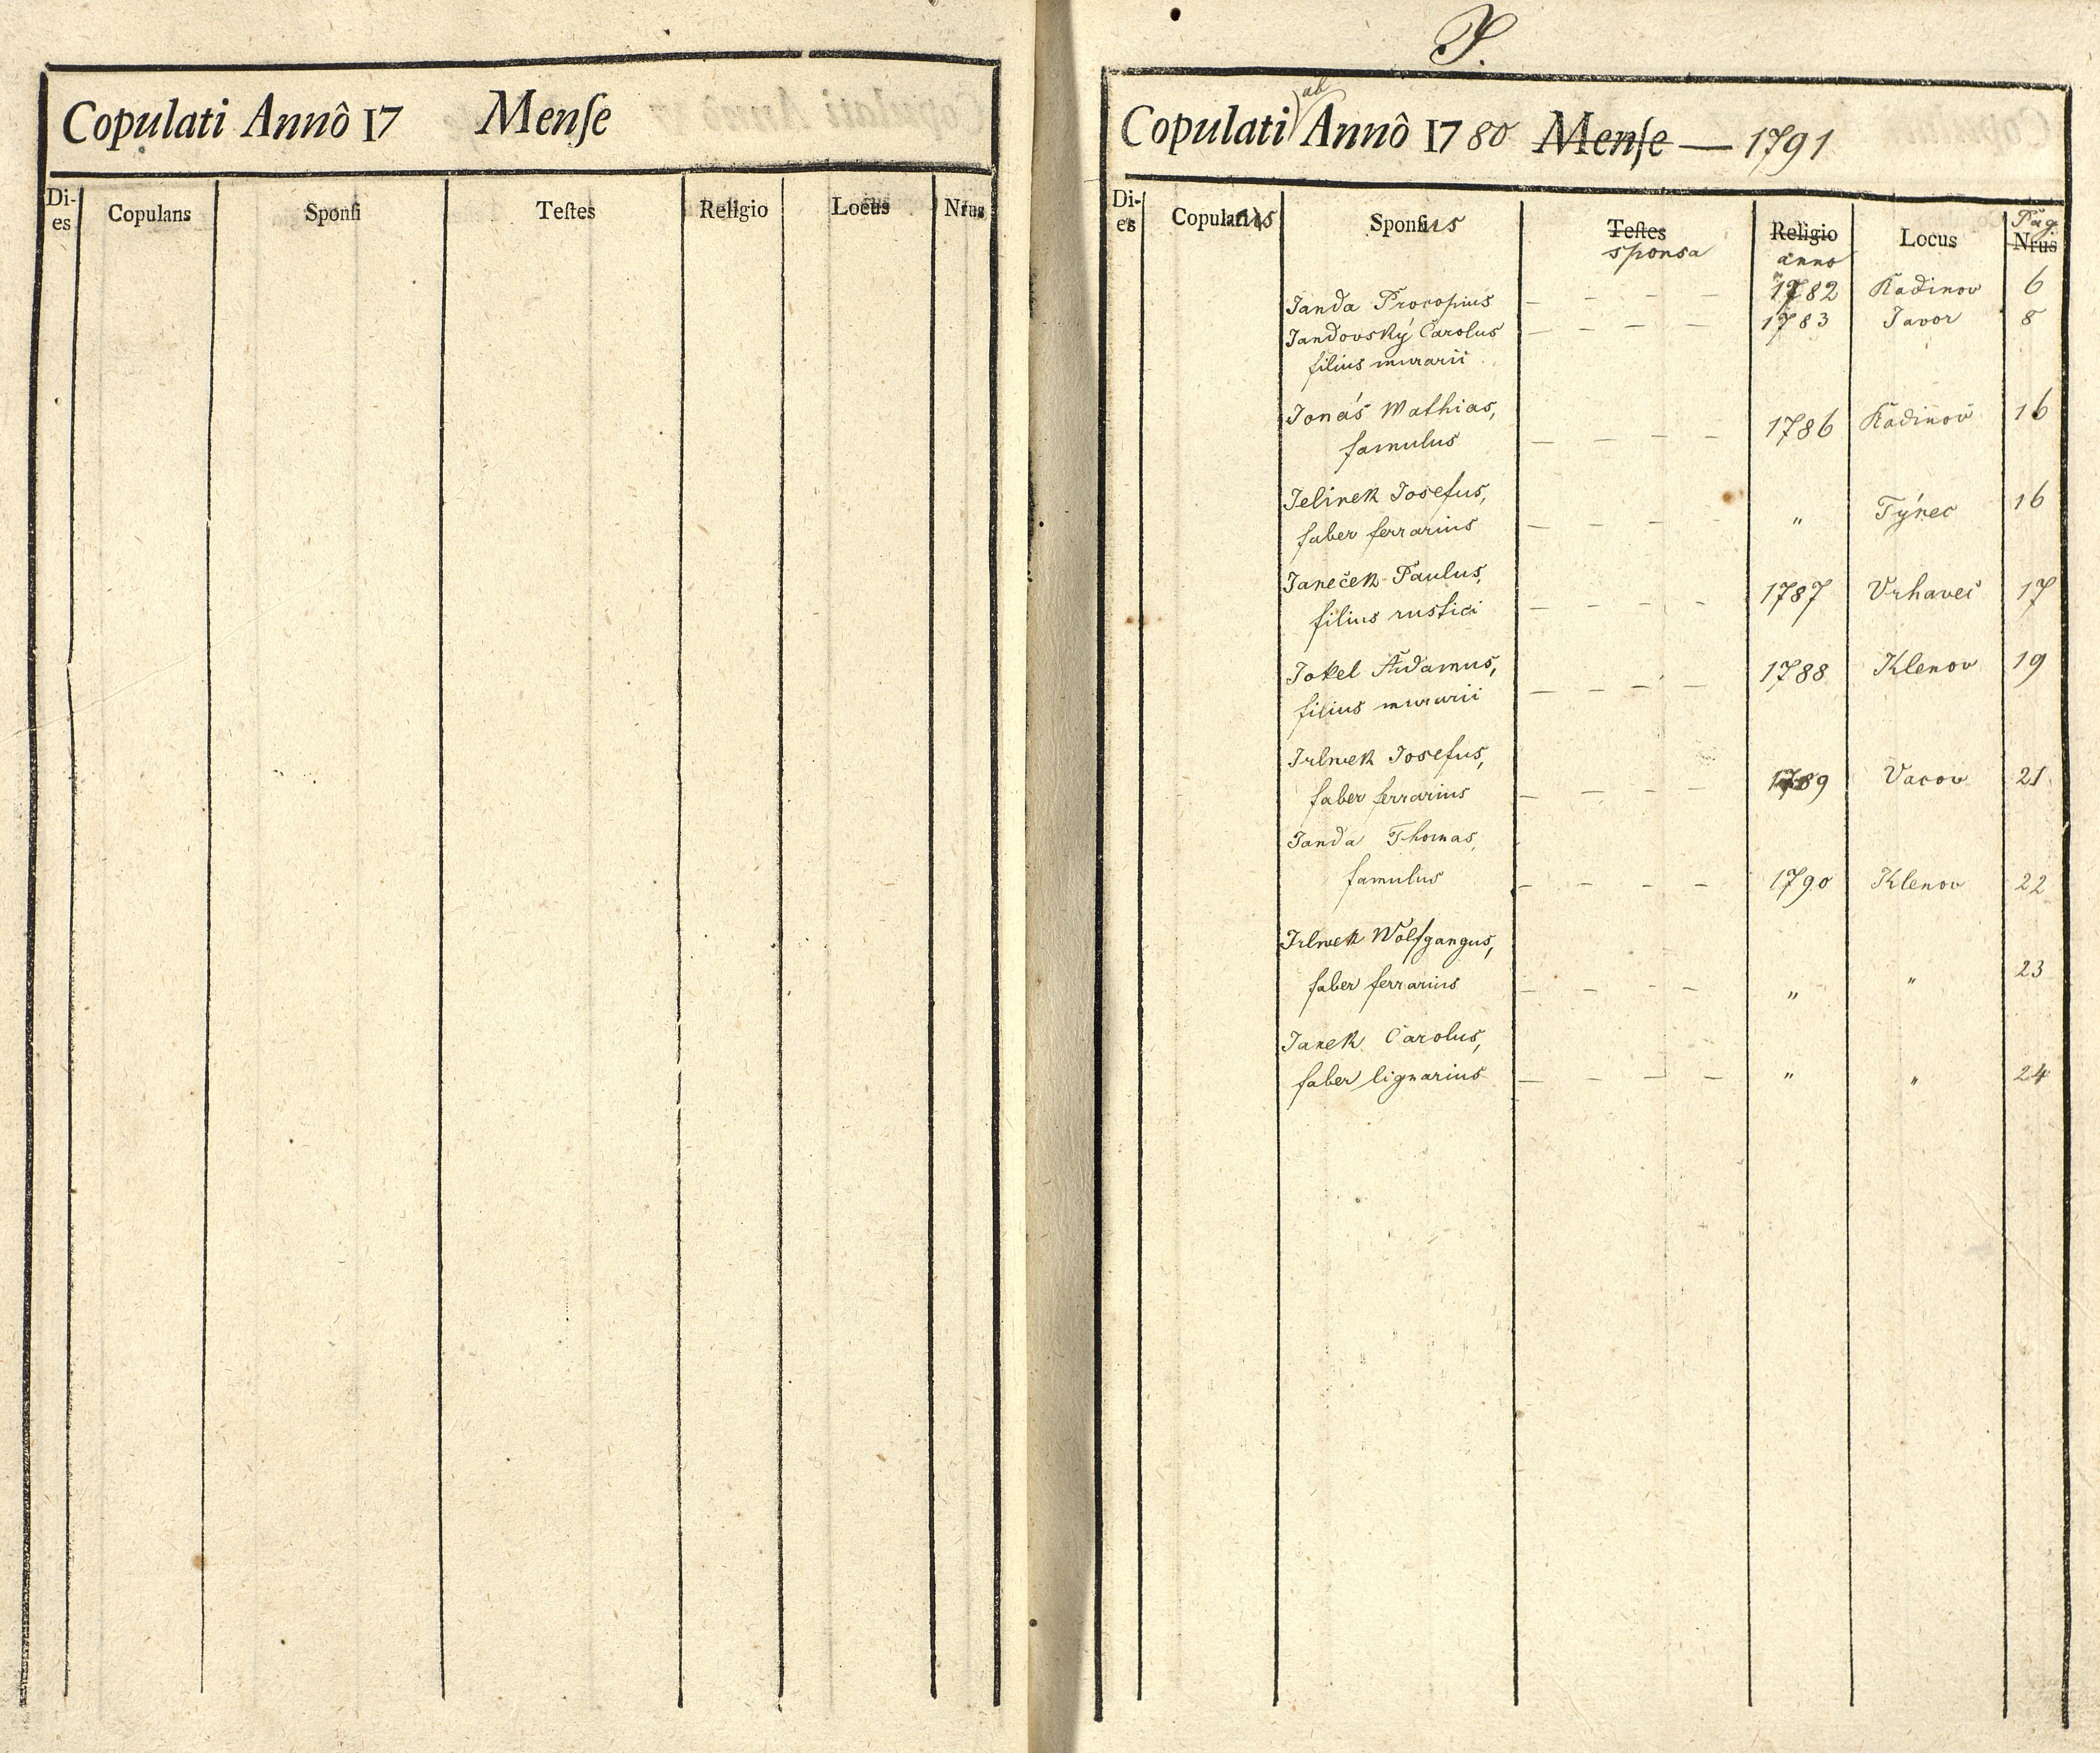 Copulati Annô 17 Menſe
Di-es Copulans Sponſi Teſtes Religio Locus Nrus
J.
Copulati ab Annô 1780 Menſe — 1791
Di-es Sponſus Teſtes Religio Locus Pag. Nrus
sponsa anno
Janda Procopius — — — — 1782 Kadinov 6
Jandovský Carolus — — — — 1783 Javor 8
filius murarii
Jonáš Mathias, 16
famulus — — — — 1786 Kadinov
Jelinek Josefus, 16
faber ferrarius — — — — " Týnec
Janeček Paulus,
filius rustici — — — — 1787 Vrhaveč 17
Jokel Adamus, 1788 Klenov 19
filius murarii — — — —
Irlwek Josefus,
faber ferrarius — — — — 1789 Vacov 21
Janda Thomas,
famulus — — — — 1790 Klenov 22
Irlwek Wolfgangus,
faber ferrarius — — — — " " 23
Janek Carolus,
faber lignarius — — — — " " 24